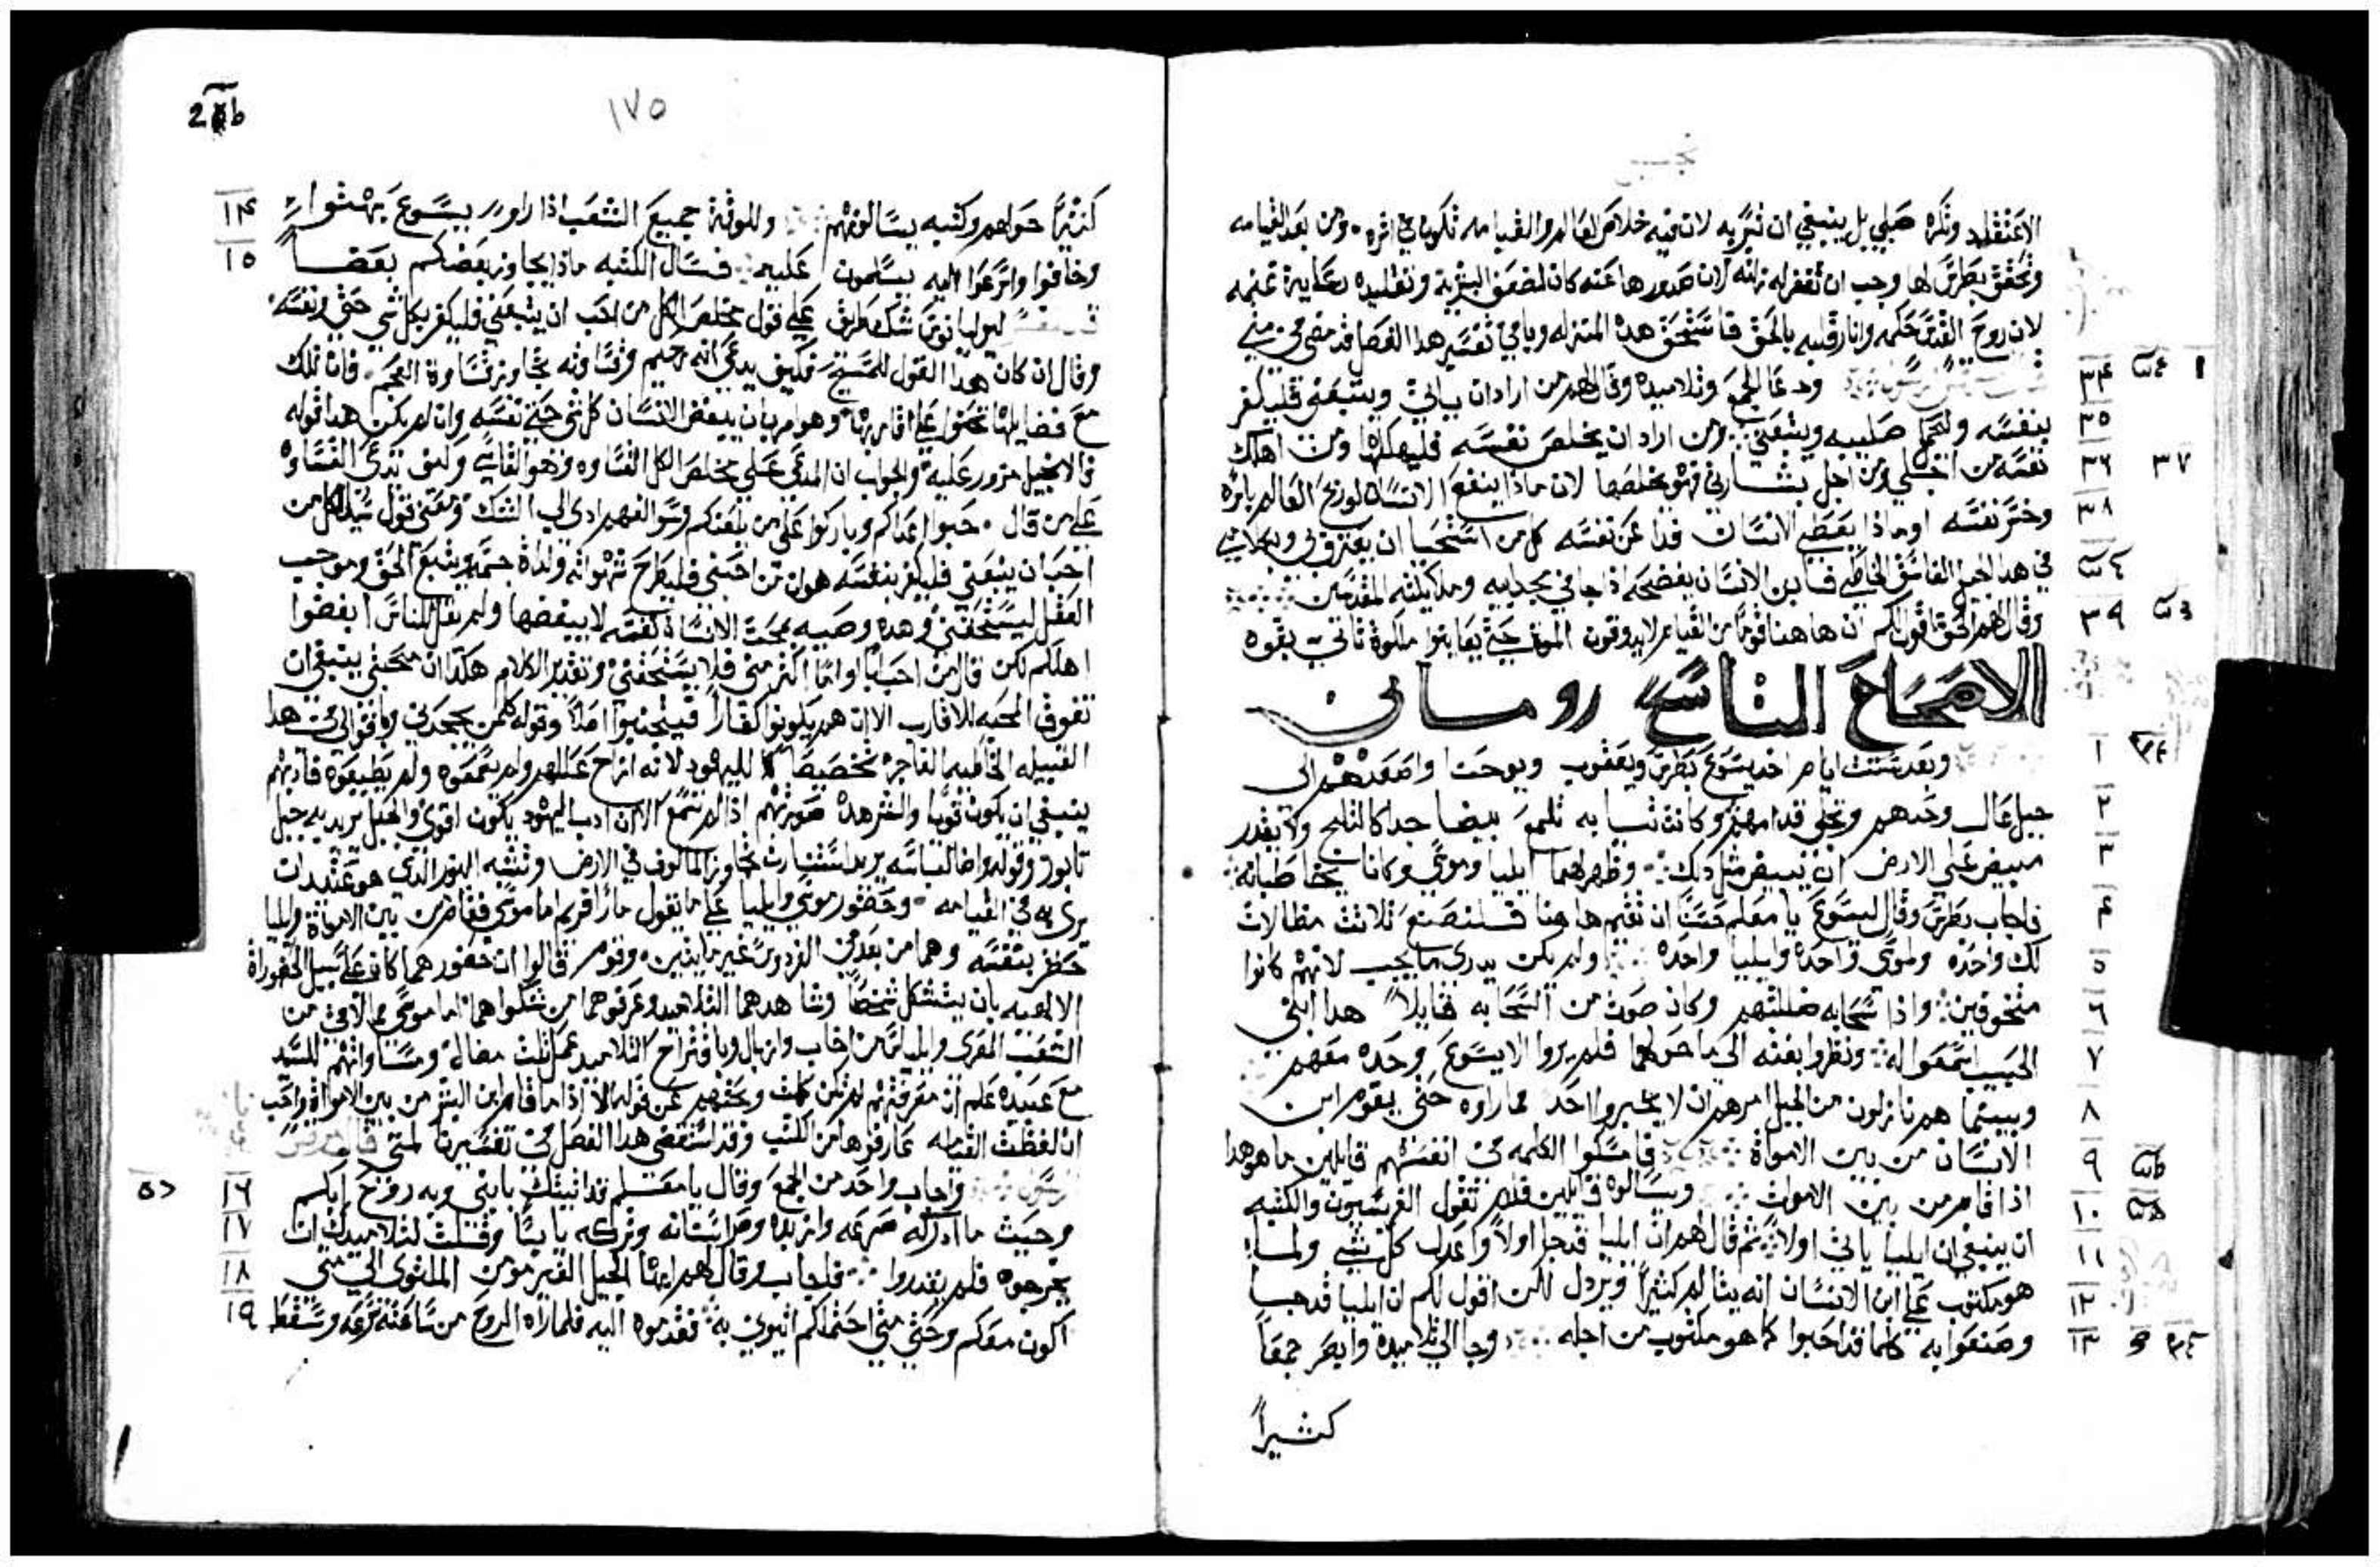 الاعتقاد وتكره صلبي بل ينبغي ان تسر به لان فيه خلاص العالم والقيامه تكون في اثره ومن بعد القيامه
وتحقق بطرس لها وجب ان تغفر له زلته لان صدورها عنه كان لضعف البشرية
لان روح القدس حكمه وانار قلبه بالحق فاستحق هده المنزله وباقي تفسير هدا الفصل قد مضى في متي
٣٤ ودعا الجمع وتلاميده وقال لهم من اراد ان ياتي ويتبعني فليكفر
٣٥ بنفسه وليحمل صليبه ويتبعني ومن اراد ان يخلص نفسه فليهلكها ومن اهلك
٣٦ ٣٧ نفسه من اجلي ومن اجل بشارتي فهو يخلصها لان ماذا ينفع الانسان لو ربح العالم باسره
٣٨ وخسر نفسه او ماذا يعطي الانسان فدا عن نفسه كل من استحيا ان يعترف بي وبكلامي
في هدا الجيل الفاسق الخاطي فابن الانسان يفضحه اذ جا في مجد ابيه وملايكته المقدسين
٣٩ وقال لهم الحق اقول لكم ان هاهنا قوما من القيام لا يدوقون الموت حتى يعاينوا ملكوة تاتي بقوه
الاصحاح التاسع روماني
١ وبعد ستت ايام اخد يسوع بطرس ويعقوب ويوحنا واصعدهم الى
٢ جبل عال وحدهم وتجلى قدامهم وكانت ثيابه تلمع بيضا جدا كالثلج ولا يقدر
٣ مبيض علي الارض ان يبيض مثل دلك وظهر لهما ايليا وموسى وكانا يخاطبانه
٤ فاجاب بطرس وقال ليسوع يا معلم حسنا ان نقيم هاهنا فلنصنع ثلاثت مظالات
٥ لك واحده ولموسى واحدة ولايليا واحده ولم يكن يدرى ما يجيب لانهم كانوا
٦ متخوفين واذا سحابه ضللتهم وكان صوت من السحابه قايلا هدا ابني
٧ الحبيب اسمعوا له ونظروا بغته الى ما حولهم فلم يروا الا يسوع وحده معهم
٨ وبينما هم نازلون من الجبل امرهم ان لا يخبروا احد بما راوه حتى يقوم ابن
٩ الانسان من بين الاموات فامسكوا الكلمه في انفسهم قايلين ما هو هدا
١٠ اذا قام من بين الاموات ويسالوه قايلين فلم تقول الفريسيون والكتبه
١١ ان ينبغي ان ايليا ياتي اولا ثم قال لهم ان ايليا قد جا اولا واعدل كل شي ولما
١٢ هو مكتوب علي ابن الانسان انه يتالم كثيرا ويردل لكن اقول لكم ان ايليا قد جا
١٣ وصنعوا به كلما قد احبوا كما هو مكتوب من اجله وجا الى تلاميدة وابصر جمعا
كثيرا
١٧٥
١٤ كثيرا حولهم وكتبه يسالونهم وللوقت جميع الشعب اذا راو يسوع بهتوا
١٥ وخافوا واسرعوا اليه يسلمون عليه فسال الكتبه ماذا يجاوز بعضكم بعضا
علي قول مخلص الكل من احب ان يتبعني فليكفر بكل شي حتى ونفسه
وقال ان كان هدا القول للمسيح فكيف يدعى انه رحيم وقساوته تجاوز قساوة العجم فان تلك
وهو امر بان يبغض الانسان كل شي حتى نفسه وان لم يكن هدا قوله
فالانجيل مزور عليه والجواب ان المدعى على مخلص الكل القساوه هو القاسي وكيف تدعى القساوه
علي من قال حبوا اعداكم وباركوا على من يلعنكم
احب ان يتبعني فليكفر بنفسه هو ان من احبني فليطرح شهواته ولداة جسمه ويتبع الحق وموجب
العقل ليستحقني وهده وصيه بمحبت الانسان لنفسه لا ببغضها ولم يقل للناس ابغضوا
اهلكم لكن قال من احب ابا او اما اكثر مني فلا يستحقني وتقدير الكلام هكدا ان محبتي ينبغي ان
تفوق المحبه للاقارب الا ان هم يكونوا كفارا
القبيله الخاطيه الفاجرة تخصيصا لليهود لانه ازاح عللهم ولم يسمعوه ولم يطيعوه فادبهم
ينبغي ان يكون قويا ادب اليهود يكون اقوى والجبل يريد به جبل
تابور وقوله واضا لباسه يريد استنارت تجاوز المالوف في الارض وتشبه النور الذى هو عتيد ان
يرى به في القيامه وحضور موسى وايليا علي ما يقول مار افريم اما موسى فقام من بين الاموات وايليا
حضر بنفسه وهما من بعد في الفردوس غير مايتين وقوم قالوا ان حضورهما كان على سبيل
الالهيه بان يتشكل شخصا وشاهدهما التلاميد وعرفوهما من شكلوا هما اما موسى مما لاقى من
الشعب العبري وايليا من اخاب وازبال وباقتراح التلاميد عمل ثلث مضال ومساواتهم للسيد
مع عبيده علم ان معرفتهم لم تكن كملت وبحثهم عن قوله الا اذا ما قام ابن البشر من بين الاموات واجب
ان لفظت القيامه عارفوها من الكتب وقد استقضى هدا الفصل في تفسيرنا لمتى قال مرقس
١٦ واجاب واحد من الجمع وقال يا معلم قد اتيتك بابني وبه روح ابكم
١٧ وحيث ما ادركه صرعه وازبده وصر اسنانه وتركه يابسا وقلت لتلاميدك ان
١٨ يخرجوه فلم يقدروا فاجاب وقال لهم ايها الجيل الغير مومن الملتوى الى متى
١٩ اكون معكم وحتى متى احتملكم ايتوني به فقدموه اليه فلما راه الروح من ساعته صرعه وسقط